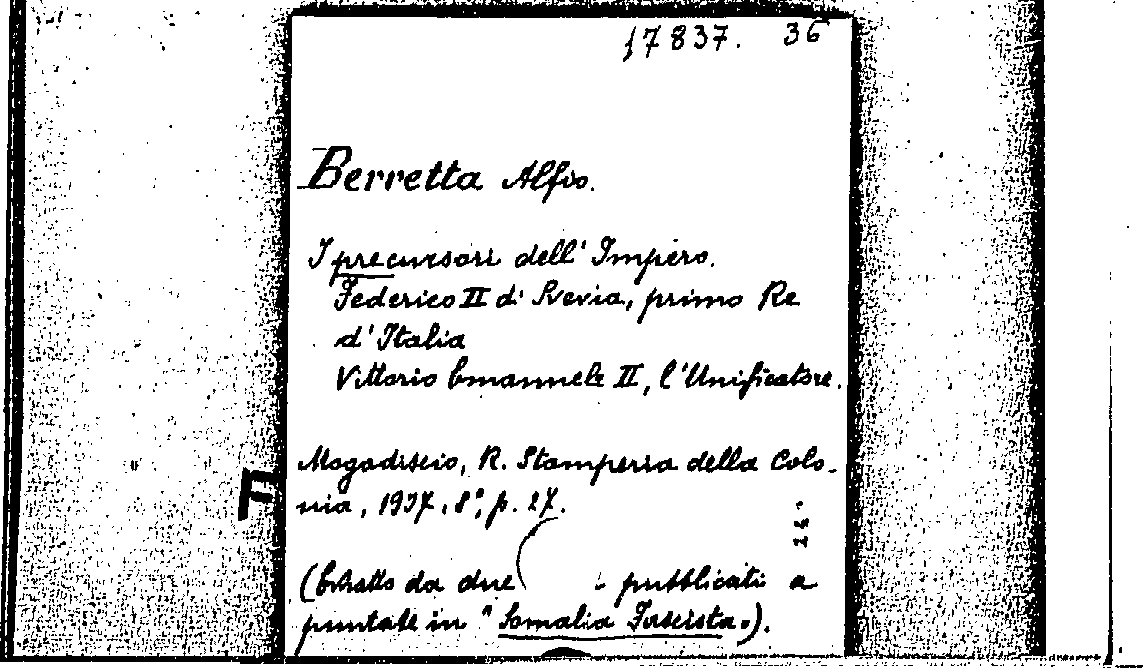 17837. 36
Berretta Alfio.
I precursori dell' Impero.
Federico II di Svevia, primo Re
d'Italia
Vittorio Emanuele II, l'Unificatore.
Mogadiscio, R. Stamperia della Colo-
nia, 1937, 8°, p. 27.
F
(Estratto da due pubblicati a
puntate in "Somalia Fascista.).